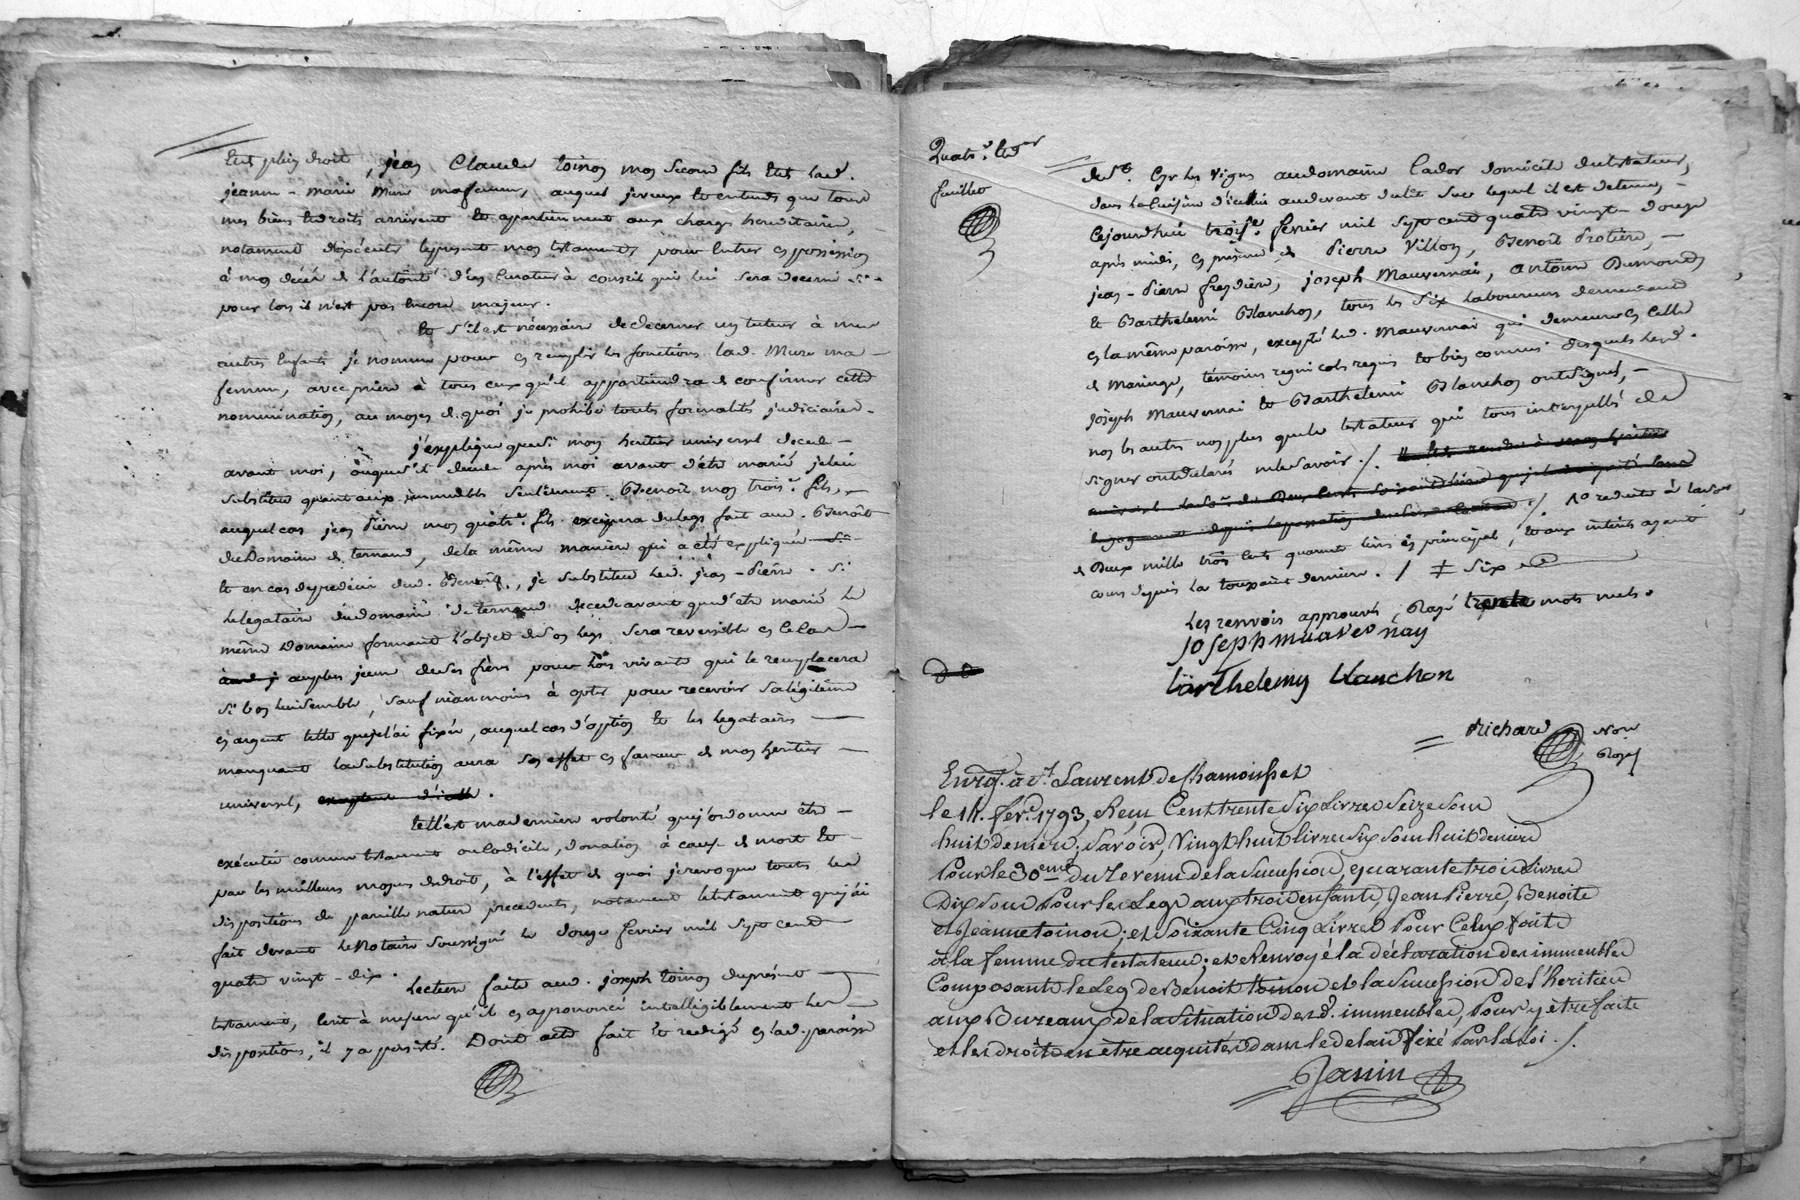 plein droit, jean Claude toinon mon second fils et lad.
jeanne-marie Mure ma femme, auquel je veux et entends que tous
mes biens et droits arrivent et appartiennent aux charges hereditaires,
notament d'exécuter le present mon testament, pour entrer en possession
à mon décés de l'autorité d'un Curateur à conseil qui lui sera decerné si
pour lors il n'est pas encore majeur.
Et s'il est nécessaire de decerner un tuteur à mes
autres enfants je nomme pour en remplir les fonctions lad. Mure ma
femme, avec priere à tous ceux qu'il appartiendra de confirmer cette
nomination, au moyen de quoi je prohibe toutes formalités judiciaires.
j'explique que si mon heritier universel decede
avant moi, ou que s'il decede après moi avant d'être marié je lui
substitue quant aux immeubles seulement Benoît mon trois.e fils,
auquel cas jean Pierre mon quatr.e fils exeipera du legs fait aud. Benoît
du Domaine de ternand, de la même maniere qui a été expliquée
et en cas de predécés dud. Benoît, je substitue led. jean-Pierre. Si
le legataire du domaine de ternand decede avant que d'etre marié le
même Domaine formant l'objet de son legs sera reversible en ce cas
au plus jeune de ses freres pour lors vivants qui le remplacera
si bon lui semble, sauf néanmoins à opter pour recevoir sa légitime
en argent telle que je l'ai fixée, auquel cas d'option et les legataires
manquant la substitution aura son effet en faveur de mon heritier
universel,
telle est ma derniere volonté que j'ordonne être
exécutée comme testament ou codicile, donation à cause de mort et
par les meilleurs moyens de droit, à l'effet de quoi je revoque toutes les
dispositions de pareille nature precedentes, notament le testament que j'ai
fait devant le Notaire soussigné le douze fevrier mil sept cent
quatre vingt-dix.
Lecture faite aud. joseph toinon du présent
testament, écrit à mesure qu'il en a prononcé intelligiblement les
dispositions, il y a persisté. Dont acte fait et redigé en lad. paroisse
Quatr.e et der
feuillet
de St. Cyr les Vignes au domaine Cador domicile du testateur,
dans la Cuisine d'icelui au devant du lit sur lequel il est detenu,
Cejourd'hui trois.e fevrier mil sept cent quatre vingt-douze
après midi, en présence de Pierre Villon, Benoît Protiere,
jean-Pierre fresdiere, joseph Mauvernai, antoine Dumonds
et Barthelemi Blanchon, tous les six laboureurs demeurant
en la même paroisse, excepté led. Mauvernai qui demeure en celle
de Maringe, témoins regnicols requis et bien connus desquels led.
joseph Mauvernai et Barthelemi Blanchon ont signé,
non les autres non plus que le testateur qui tous interpellés de
signer ont declaré ne le savoir ./.
./. 1o reduite à la somme
de Deux mille trois cents quarante livres en principal, et aux interets ayant
cours depuis la toussaint derniere. / ǂ six
Les renvois approuvés, Rayé trente mots nuls.
joseph mauvernay
barthelemy blanchon
Richard Nore
Royal
Enreg. à St. Laurent de Chamousset
le 14. fev.r 1793, Reçu Cent trente Six Livres Seize Sous
huit deniers; Savoir, Vingt huit livres Six Sous huit deniers
Pour le 30eme du revenu de la Succession, quarante trois livres
Dix Sous Pour les Legs aux trois enfants, Jean Pierre, Benoite
et Jeanne toinon; et Soixante Cinq Livres Pour Celuy fait
à la femme du testateur; et Renvoyé la déclaration des immeubles
Composants le Leg de Benoit toinon et la Succession de l'heritier
aux Bureaux de la Situation desd. immeubles, Pour y être faite
et les droits en être acquités dans le delai fixé Par la Loi ./.
Janin